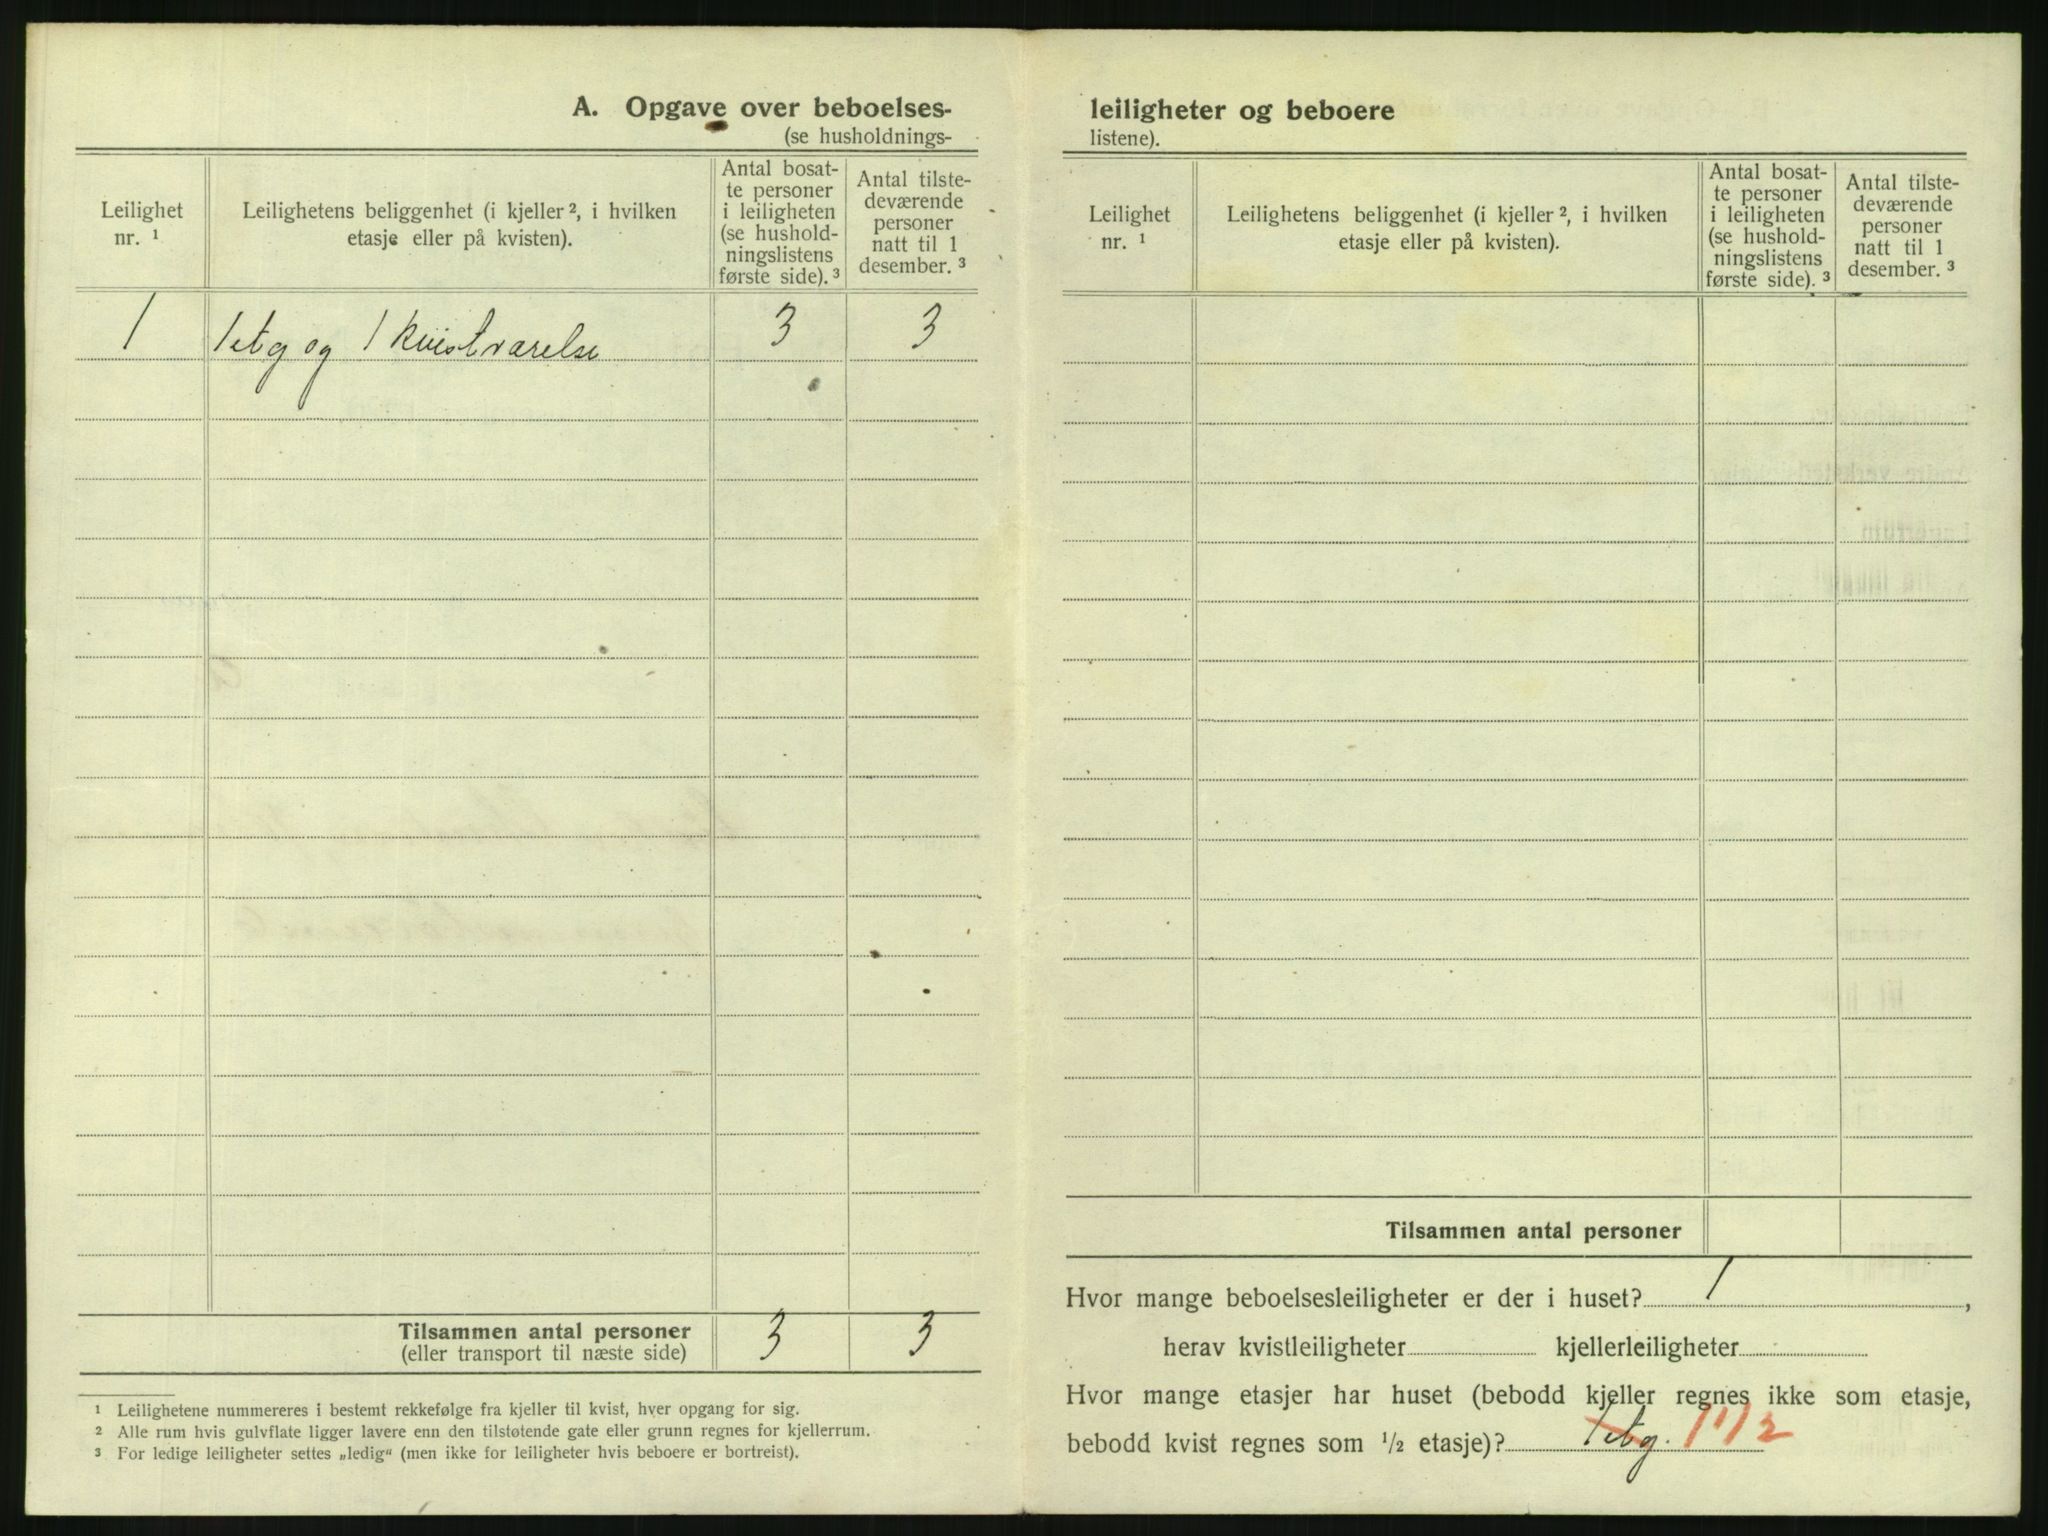 A. Opgave over beboelses-
(se husholdnings-
Leilighet nr. ¹
Leilighetens beliggenhet (i kjeller ², i hvilken
etasje eller på kvisten).
Antal bosat-
te personer
i leiligheten
(se hushold-
ningslistens
første side). ³
Antal tilste-
deværende
personer
natt til 1
desember. ³
1 1 etg og 1 kvistværelse 3 3
Tilsammen antal personer 3 3
(eller transport til næste side)
¹ Leilighetene nummereres i bestemt rekkefølge fra kjeller til kvist, hver opgang for sig.
² Alle rum hvis gulvflate ligger lavere enn den tilstøtende gate eller grunn regnes for kjellerrum.
³ For ledige leiligheter settes „ledig“ (men ikke for leiligheter hvis beboere er bortreist).
leiligheter og beboere
listene).
Leilighet
nr. ¹
Leilighetens beliggenhet (i kjeller ², i hvilken
etasje eller på kvisten).
Antal bosat-
te personer
i leiligheten
(se hushold-
ningslistens
første side). ³
Antal tilste-
deværende
personer
natt til 1
desember. ³
Tilsammen antal personer
Hvor mange beboelsesleiligheter er der i huset? 1,
herav kvistleiligheter kjellerleiligheter
Hvor mange etasjer har huset (bebodd kjeller regnes ikke som etasje,
bebodd kvist regnes som ½ etasje)? 1 etg. 1 1/2